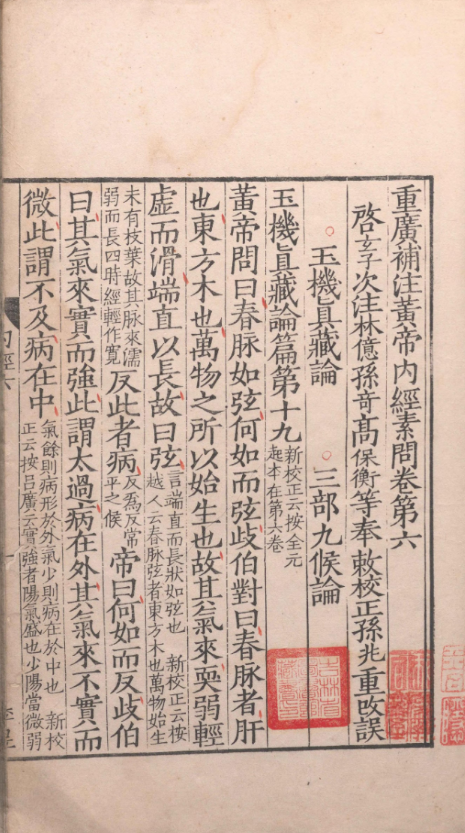 重廣補注黃帝內經素問卷第六
啓玄子次注林億孫竒高保衡等奉敕校正孫兆重改誤
玉機眞藏論 三部九候論
玉機眞藏論篇第十九新校正云按全元起本在第六卷
黃帝問曰春脉如弦何如而弦歧伯對曰春脉者肝
也東方木也萬物之所以始生也故其氣來耎弱輕
虛而滑端直以長故曰弦言端直而長狀如弦也 新校正云按越人云春脉弦者東方木也萬物始生
未有枝葉故其脉來濡弱而長四時經輕作寬反此者病反爲反常平之候帝曰何如而反歧伯
曰其氣來實而強此謂太過病在外其氣來不實而
微此謂不及病在中氣餘則病形於外氣少則病在於中也 新校正云按呂廣云實強者陽氣盛也少陽當微弱
內經六